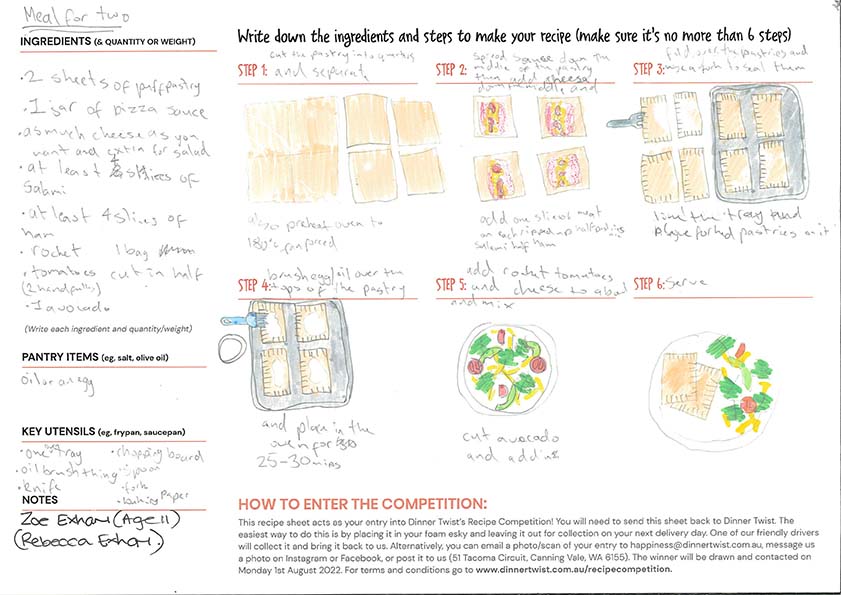 Meal for two
INGREDIENTS (& QUANTITY OR WEIGHT)
• 2 sheets of puff pastry
• 1 jar of pizza sauce
• as much cheese as you
want and extra for salad
• at least slices of
Salami
• at least 4 slices of
ham
• rocket 1 bag
• tomatoes cut in half
(2 handfulls)
• 1 avocado
(Write each ingredient and quantity/weight)
PANTRY ITEMS (eg, salt, olive oil)
Oil or an egg
KEY UTENSILS (eg, frypan, saucepan)
• one tray
• oil brush thing
• knife
• chopping board
• spoon
• fork
• baking paper
NOTES
Zoe Exham (Age 11)
(Rebecca Exham).
Write down the ingredients and steps to make your recipe (make sure it's no more than 6 steps)
STEP 1: cut the pastry into quarters
and separate
also preheat oven to
180°c fan forced
STEP 2: spread sauce down the
middle of the pastry
then add cheese
down the middle and
add one slice of meat
on each ripped up half
salami half ham
STEP 3: fold over the pastries and
use a fork to seal them
line the tray and
place forked pastries on it
STEP 4: brush egg/oil over the
tops of the pastry
and place in the
oven for
25-30 mins
STEP 5: add rocket tomatoes
and cheese to a bowl
and mix
cut avocado
and add in
STEP 6: Serve
HOW TO ENTER THE COMPETITION:
This recipe sheet acts as your entry into Dinner Twist's Recipe Competition! You will need to send this sheet back to Dinner Twist. The
easiest way to do this is by placing it in your foam esky and leaving it out for collection on your next delivery day. One of our friendly drivers
will collect it and bring it back to us. Alternatively, you can email a photo/scan of your entry to happiness@dinnertwist.com.au, message us
a photo on Instagram or Facebook, or post it to us (51 Tacoma Circuit, Canning Vale, WA 6155). The winner will be drawn and contacted on
Monday 1st August 2022. For terms and conditions go to www.dinnertwist.com.au/recipecompetition.